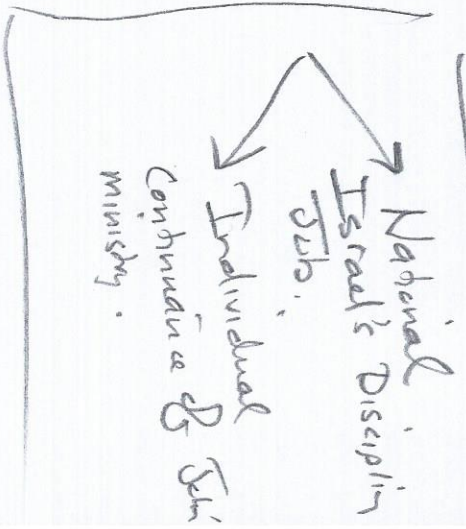 National
Israel's Disciplin
Individual
Continuance of
ministry.